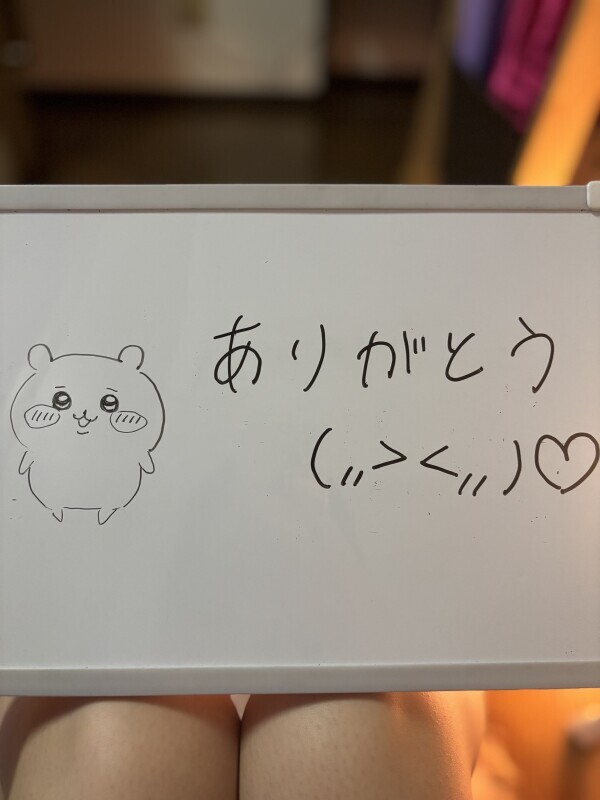 ありがとう
(„><„)♡